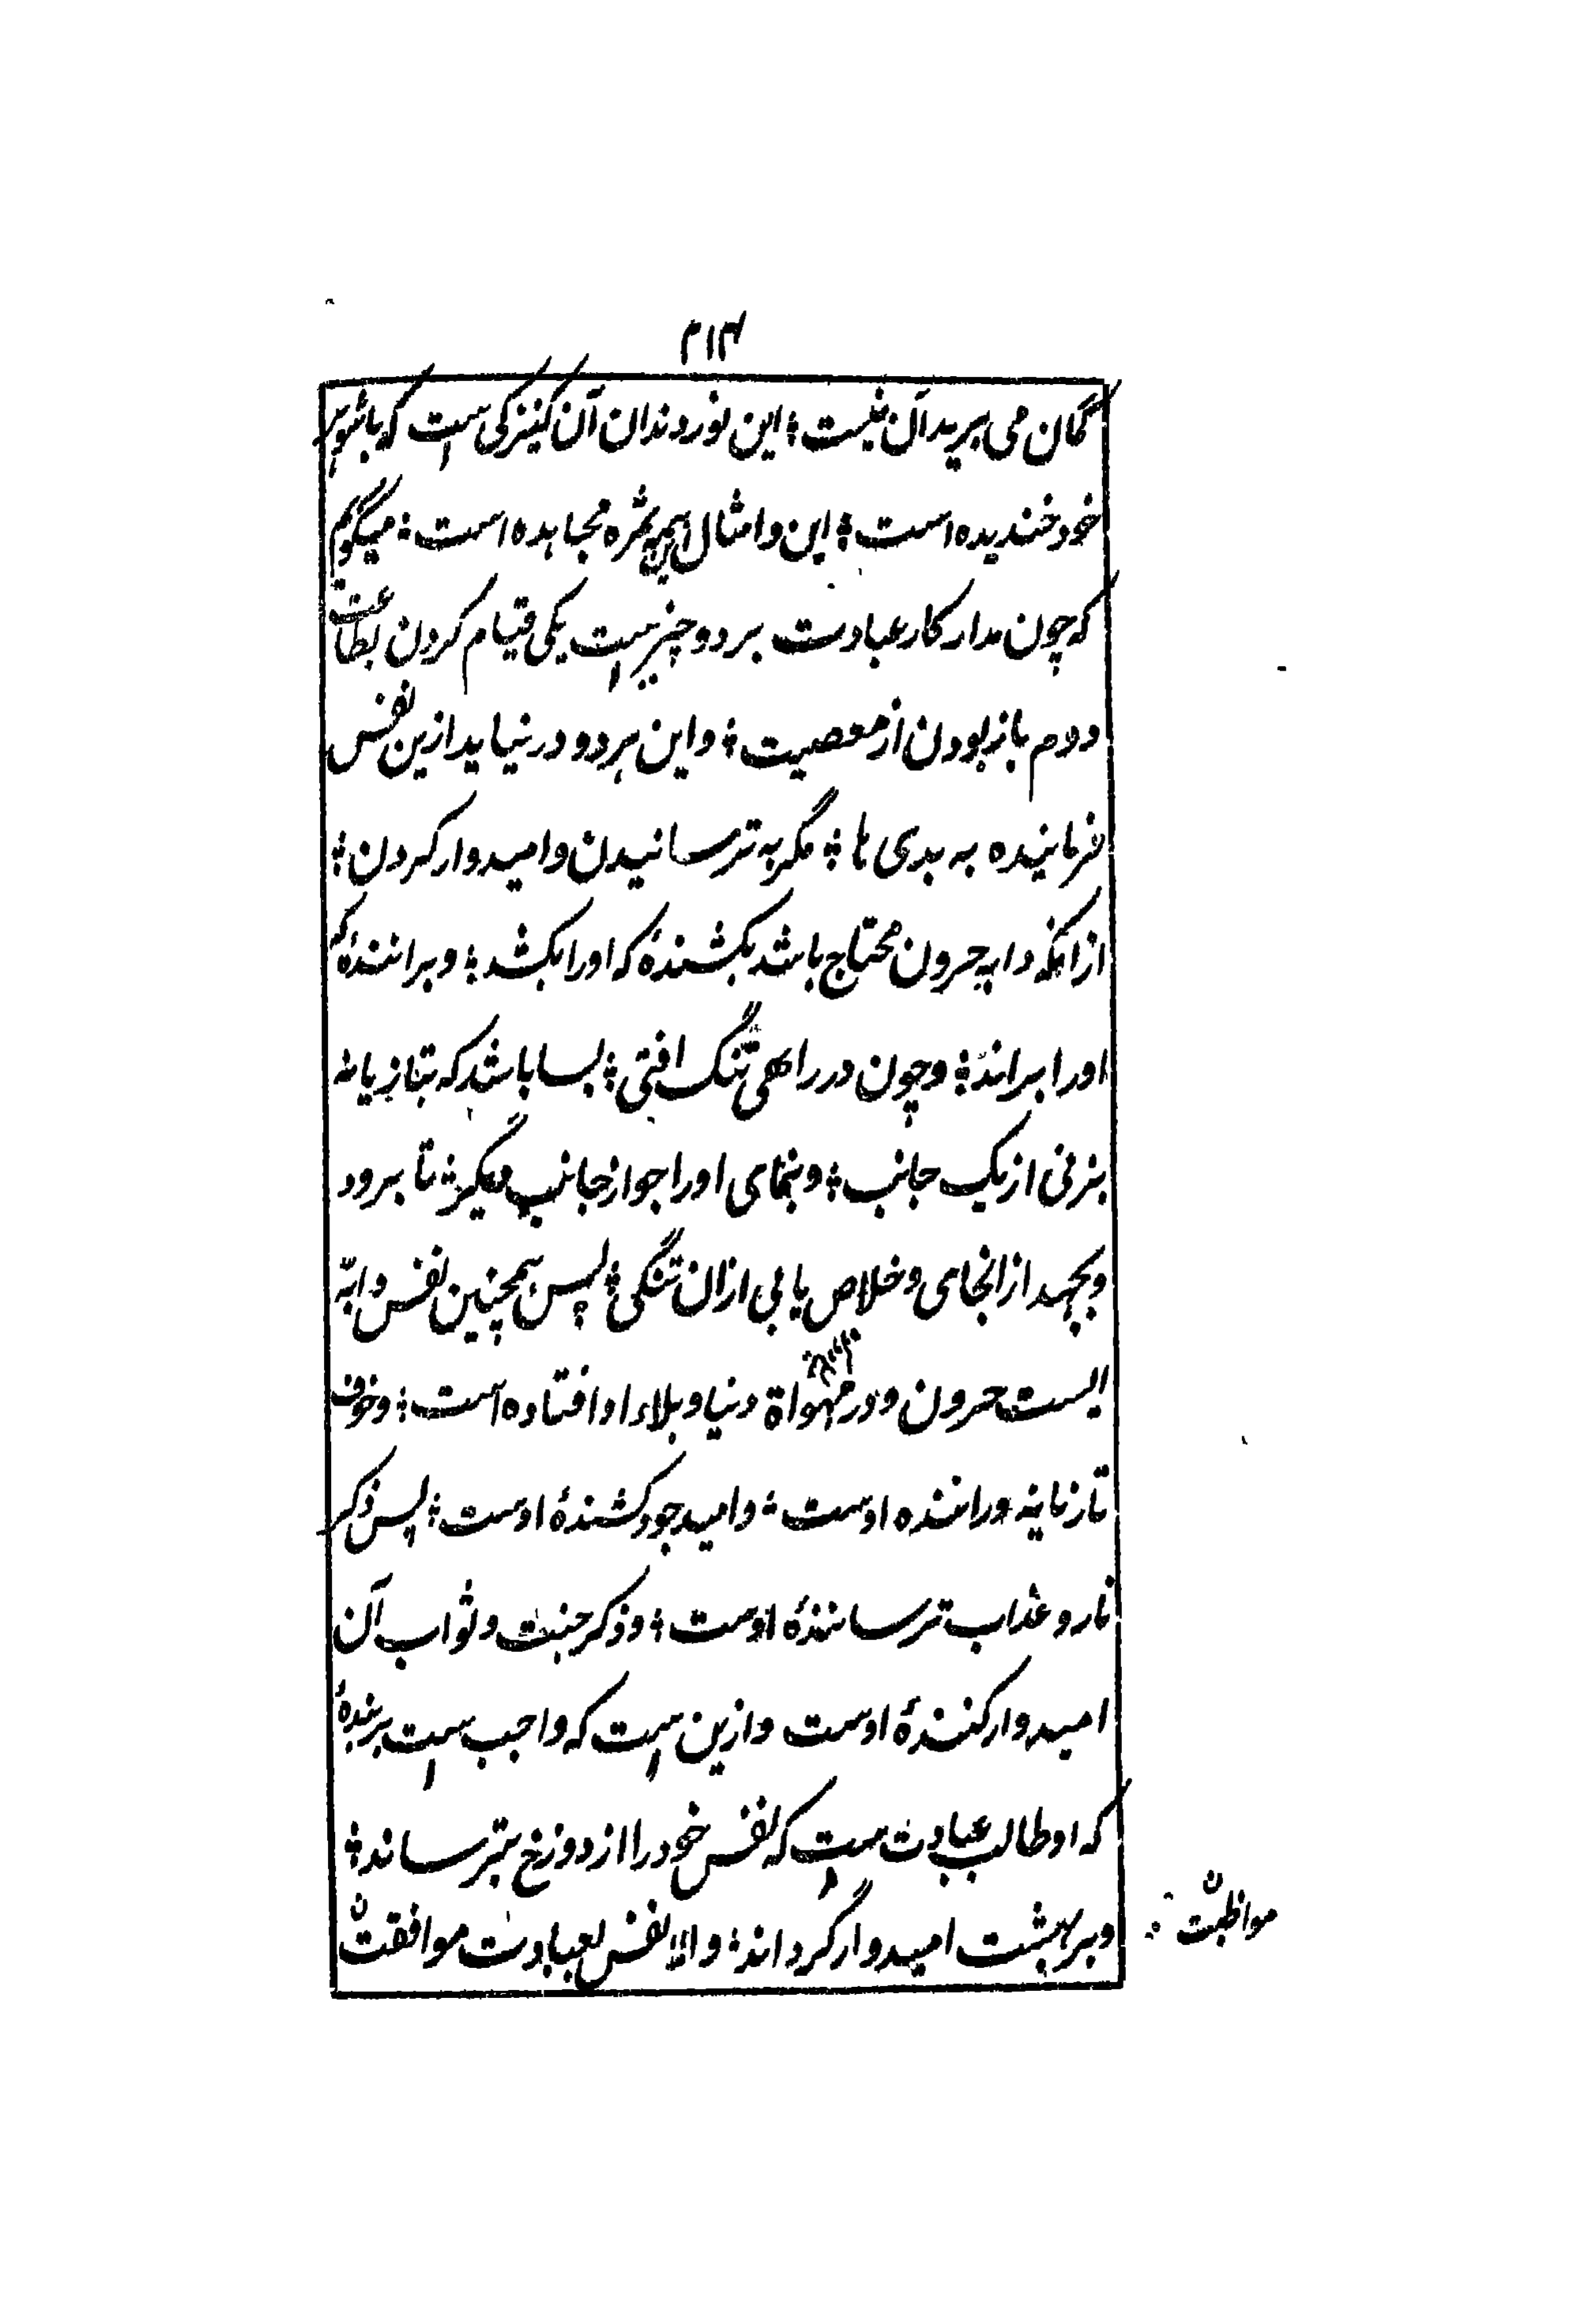 ۲۱۴
گمان می برید آن نیست ؛ این نور دندان آن کنیزکی است که با شوہر
خود خندیده است ؛ این و امثال این ہمہ ثمره مجاہده است ؛ میگویم
که چون مدار کار عبادت بر دو چیز است یکی قیام کردن بطاعت
دوم باز بودن از معصیت ؛ و این ہر دو در نیاید ازین نفس
فرماینده به بدی ہا ؛ مگر به ترسانیدن و امیدوار کردن ؛
از انکہ دابہ حرون محتاج باشد بکشندۂ که اورا بکشد ؛ و برانندۂ که
اورا براند ؛ و چون در راهی تنگ افتی ؛ بسا باشد که بتازیانه
بزنی از یک جانب ؛ و بنمای اورا جو از جانب دیگر ؛ تا برود
و بجہد از انجای و خلاص یابی ازان تنگی ؛ پس ہمچنین نفس دابّہ
ایست حرون و در مہواة دنیا و بلاء او افتاده است ؛ و خوف
تازنایہ و راننده اوست ؛ و امید جود کشندۂ اوست ؛ پس ذکر
نار و عذاب ترسانندۂ اوست ؛ و ذکر جنت و ثواب آن
امیدوار کنندۂ اوست و ازین است که واجب است بر بندۂ
که او طالب عبادت است که نفس خود را از دوزخ بترساند ؛
و بر بہشت امیدوار گرداند ؛ و الا نفس بعبادت موافقت
مواظبت